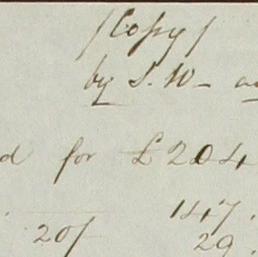 /Copy/
by S. W -
d for £204
147.
20/ 29.